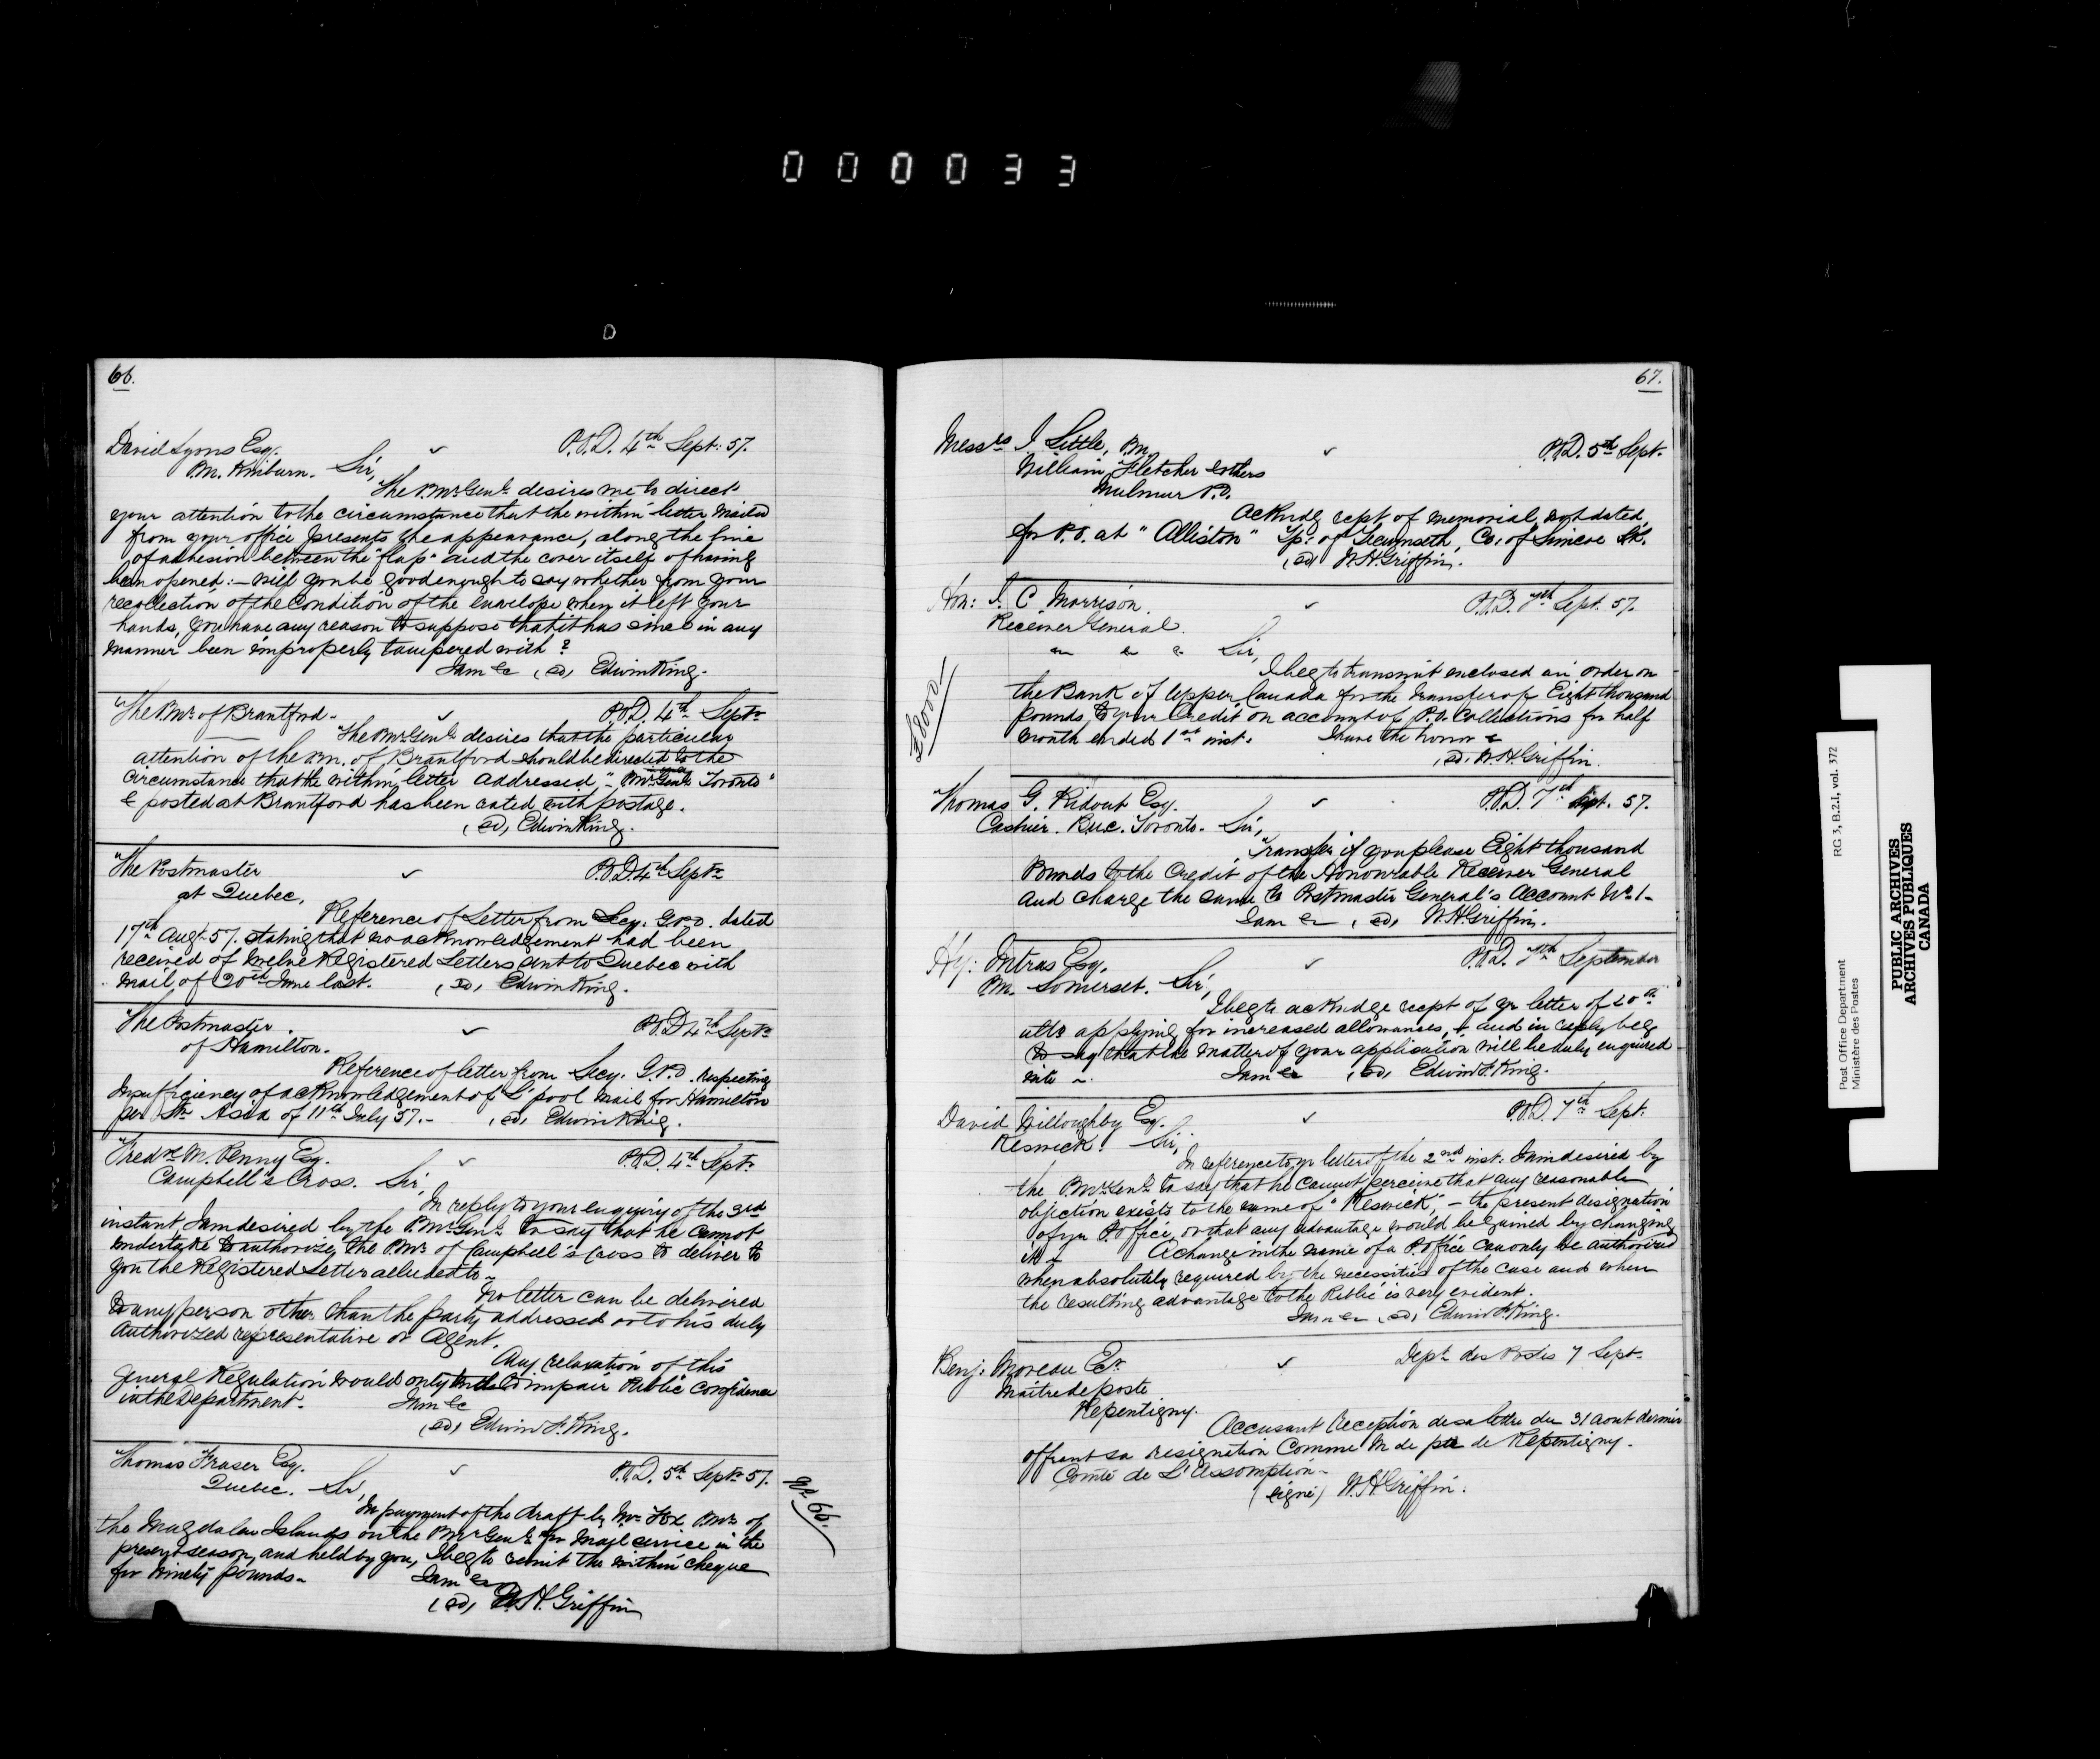 000033
66.
David Lyons Esq. P.O.D. 4th Sept: 57.
P.M. Kinburn. Sir,
The P.Mr Genl desires me to direct
your attention to the circumstance that the within letter mailed
from your office presents the appearance, along the line
of adhesion between the "flap" and the cover itself of having
been opened:— Will you be good enough to say whether from your
recollection of the condition of the envelope when it left your
hands, you have any reason to suppose that it has since in any
manner been improperly tampered with?
I am &c (sd) Edwin King.
The P.Mr of Brantford. P.O.D. 4th Septr
The P.Mr Genl desires that the particular
attention of the P.M. of Brantford should be directed to the
circumstance that the within letter addressed "P.Mr Genl Toronto"
& posted at Brantford has been rated with postage.
(sd) Edwin King.
The Postmaster P.O.D. 4th Septr
at Quebec,
Reference of Letter from Secy. G.P.O. dated
17th Augt 57. stating that no acknowledgement had been
received of twelve Registered Letters sent to Quebec with
mail of 20th June last. (sd) Edwin King.
The Postmaster P.O.D 4th Septr
of Hamilton.
Reference of letter from Secy. G.P.O. respecting
Insufficiency of acknowledgement of L'pool Mail for Hamilton
per Str Asia of 11th July 57.— (sd) Edwin King.
Fredk M. Penny Esq. P.O.D. 4th Septr
Campbell's Cross. Sir,
In reply to your enquiry of the 3rd
instant, I am desired by the P.Mr Genl to say that he cannot
undertake to authorize the P.Mr of Campbell's Cross to deliver to
you the Registered Letter alluded to—
No letter can be delivered
to any person other than the party addressed or to his duly
authorized representative or agent.
Any relaxation of this
General Regulation would only tend to impair Public confidence
in the Department. I am &c
(sd) Edwin F. King.
Thomas Fraser Esq. P.O.D. 5th Septr 57.
Quebec. Sir,
In payment of the draft by Mr Fox P.Mr of
the Magdalen Islands on the P.Mr Genl for Mail service in the
present season, and held by you, I beg to remit the within cheque
for Ninety pounds— I am &c
(sd) W.H. Griffin
67.
Messrs J Little, P.M. P.O.D. 5th Sept.
William Fletcher & others
Mulmur P.O.
Acknldg rcpt of memorial, not dated,
for P.O. at "Alliston" Tp: of Tecumseth, Co. of Simcoe
(sd) W.H. Griffin.
Hon: J. C. Morrison. P.O.D. 7th Sept. 57.
Receiver General.
Sir,
I beg to transmit enclosed an order on
the Bank of Upper Canada for the transfer of Eight thousand
pounds, to your Credit on account of P.O. Collections for half
month ended 1st inst. I have the honor &
(sd) W.H. Griffin.
£8000.
Thomas G. Ridout Esq. P.O.D. 7th Sept. 57.
Cashier. B.U.C. Toronto. Sir,
Transfer if you please Eight thousand
Pounds to the Credit of the Honourable Receiver General
and charge the same to Postmaster General's Account No 1—
I am &c (sd) W.H. Griffin.
Hy: Intras Esq. P.O.D. 7th September
P.M. Somerset. Sir,
I beg to acknldge recpt of yr letter of 20th
ulto applying for increased allowances, & and in reply beg
to say that the matter of your application will be duly enquired
into— I am &c (sd) Edwin F. King.
David Willoughby Esq. P.O.D. 7th Sept.
Keswick. Sir,
In reference to yr letter of the 2nd inst: I am desired by
the P.Mr Genl to say that he cannot perceive that any reasonable
objection exists to the name of "Keswick",— the present designation
of yr P.office, or that any advantage would be gained by changing
it— A change in the name of a P.office can only be authorized
when absolutely required by the necessities of the case and when
the resulting advantage to the Public is very evident.
I am &c (sd) Edwin F. King.
Benj. Moreau Ecr Dept des Postes 7 Sept.
Maitre de poste
Repentigny.
Accusant reception de sa lettre du 31 aout dernier
offrant sa resignation comme M de pte de Repentigny.
Comté de L'Assomption—
(signé) W.H. Griffin.
Post Office Department
Ministère des Postes
RG 3, B.2.1, vol. 372
PUBLIC ARCHIVES
ARCHIVES PUBLIQUES
CANADA